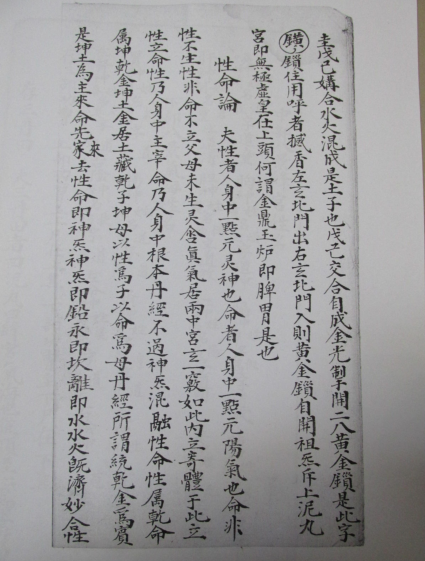 圭戊己媾合水火混成是土子也戊己交合自成金光劄子開二八黃金鎖是此字
鐄鎖住用呼者撼昏左玄北門出右玄北門入則黃金鎖自開祖炁斥上泥丸
宮即無極虛皇在上頭何謂金鼎玉炉即脾胃是也
性命論 夫性者人身中一點元灵神也命者人身中一點元陽氣也命非
性不生性非命不立父母未生灵舍眞氣居兩中宮玄一竅如此內立寄體于此立
性立命性乃人身中主宰命乃人身中根本丹經不過神炁混融性命性属乾命
属坤乾金坤土金居土藏乾子坤母以性爲子以命爲母丹經所謂統乾金爲賓
是坤土為主來命先家去來性命即神炁神炁即鉛汞即坎離即水火水火旣濟妙合性